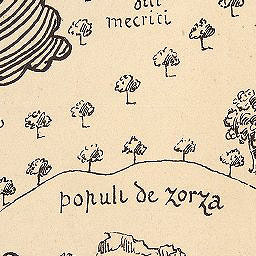 mecrici
populi de zorza